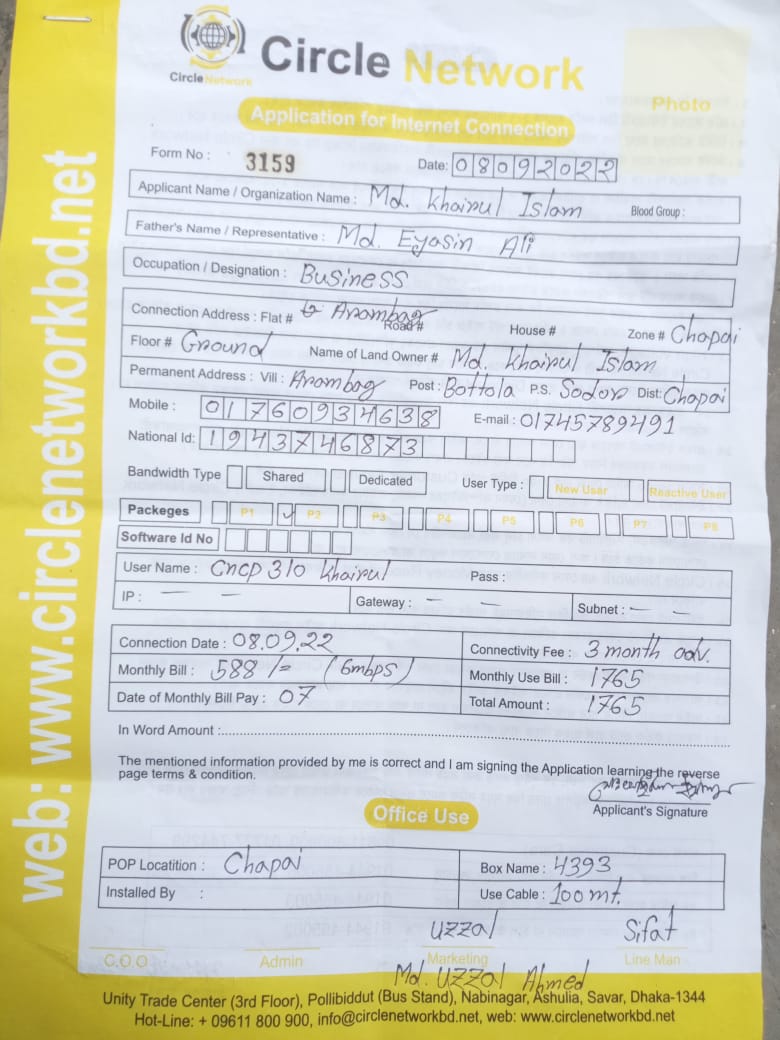 Circle Network
Circle Network
Photo
Application for Internet Connection
Form No : 3159
Date: 08092022
Applicant Name / Organization Name : Md. Khairul Islam Blood Group :
Father's Name / Representative : Md. Eyasin Ali
Occupation / Designation : Business
Connection Address : Flat # Arambag Road # House # Zone # Chapai
Floor # Ground Name of Land Owner # Md. Khairul Islam
Permanent Address : Vill : Arambag Post : Bottola P.S. Sodor Dist: Chapai
Mobile : 01760934638 E-mail : 01745789491
National Id: 1943746873
Bandwidth Type Shared Dedicated User Type : New User Reactive User
Packeges P1 ✓ P2 P3 P4 P5 P6 P7 P8
Software Id No
User Name : Cncp 310 Khairul Pass :
IP : — — Gateway : — — Subnet : — —
Connection Date : 08.09.22 Connectivity Fee : 3 month adv.
Monthly Bill : 588/= (6mbps) Monthly Use Bill : 1765
Date of Monthly Bill Pay : 07 Total Amount : 1765
In Word Amount :
The mentioned information provided by me is correct and I am signing the Application learning the reverse
page terms & condition.
Applicant's Signature
Office Use
POP Locatition : Chapai Box Name : 4393
Installed By : Use Cable : 100 mt.
Uzzal Sifat
C.O.O Admin Marketing Line Man
Md. Uzzal Ahmed
Unity Trade Center (3rd Floor), Pollibiddut (Bus Stand), Nabinagar, Ashulia, Savar, Dhaka-1344
Hot-Line: + 09611 800 900, info@circlenetworkbd.net, web: www.circlenetworkbd.net
web: www.circlenetworkbd.net